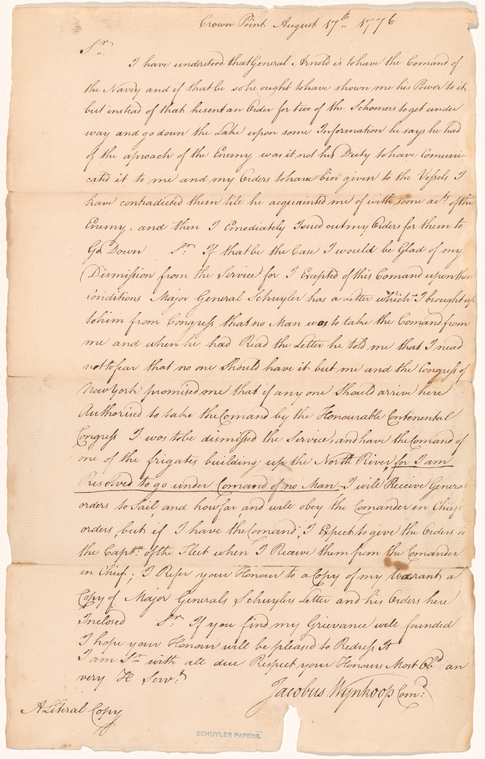 Crown Point August 17th 1776
Sr.
I have understood that General Arnold is to have the Comand of
the Navey and if that be so he ought to have shown me his Power to it
but instead of that he sent an Order for two of the Schooners to get under
way and go down the Lake upon some Information he says he had
of the aproach of the Enemy was it not his Duty to have Comuni-
cated it to me and my Orders to have bien given to the Vessels, I
have contradicted them tile he acquainted me of with some act. of the
Enemy, and then I Emediately Isued out my Orders for them to
Go Down Sr. If that be the Case I would be Glad of my
Dismission from the Service for I Excepted of this Comand upon the
Conditions Major General Schuyler has a Letter which I brought up
to him from Congress that no Man was to take the Comand from
me and when he had Read the Letter he told me that I nead
not to fear that no one Should have it but me and the Congress of
New York promised me that if any one Should arrive here
Authorised to take the Comand by the Honourable Contonental
Congress I was to be dismissed the Service, and have the Comand of
one of the frigates building up the North River, for I am
Resolved to go under Comand of no Man I will Receive General
orders to Sail, and how far and will obey the Comander in Chiefs
orders, but if I have the Comand, I Expect to give the Orders to
the Captns. of the Fleet when I Receive them from the Comander
in Chief; I Refer your Honour to a Copy of my Warrant, a
Copy of Major Generals Schuylers Letter and his Orders here
Inclosed Sr. If you find my Grievance well founded
I hope your Honour will be pleased to Redress It
I am Sr. with all due Respect your Honours Most Obd. an
very H Servt.
Jacobus Wynkoop Comr.
A Literal Copy
SCHUYLER PAPERS.